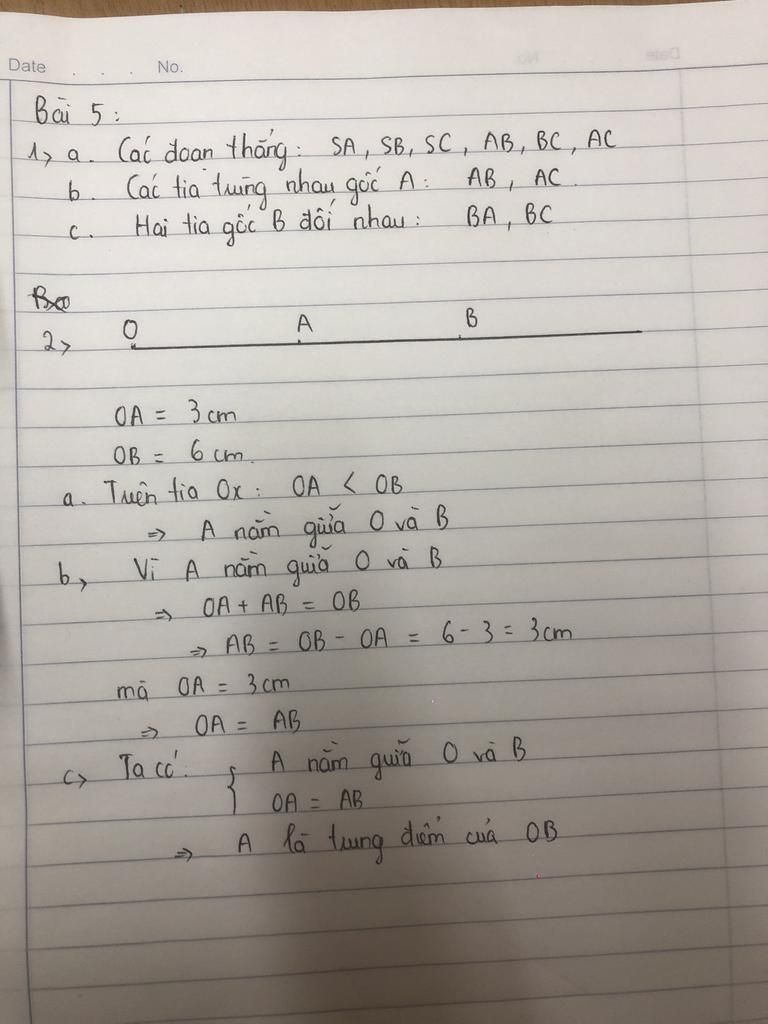 Date . . . No.
Bài 5 :
1, a. Các đoạn thẳng : SA, SB, SC, AB, BC, AC
b. Các tia trùng nhau gốc A : AB, AC.
c. Hai tia gốc B đối nhau : BA, BC
2,
O A B
OA = 3 cm
OB = 6 cm.
a. Trên tia Ox : OA < OB
⇒ A nằm giữa O và B
b, Vì A nằm giữa O và B
⇒ OA + AB = OB
⇒ AB = OB - OA = 6 - 3 = 3cm
mà OA = 3cm
⇒ OA = AB
c, Ta có : { A nằm giữa O và B
OA = AB
⇒ A là trung điểm của OB